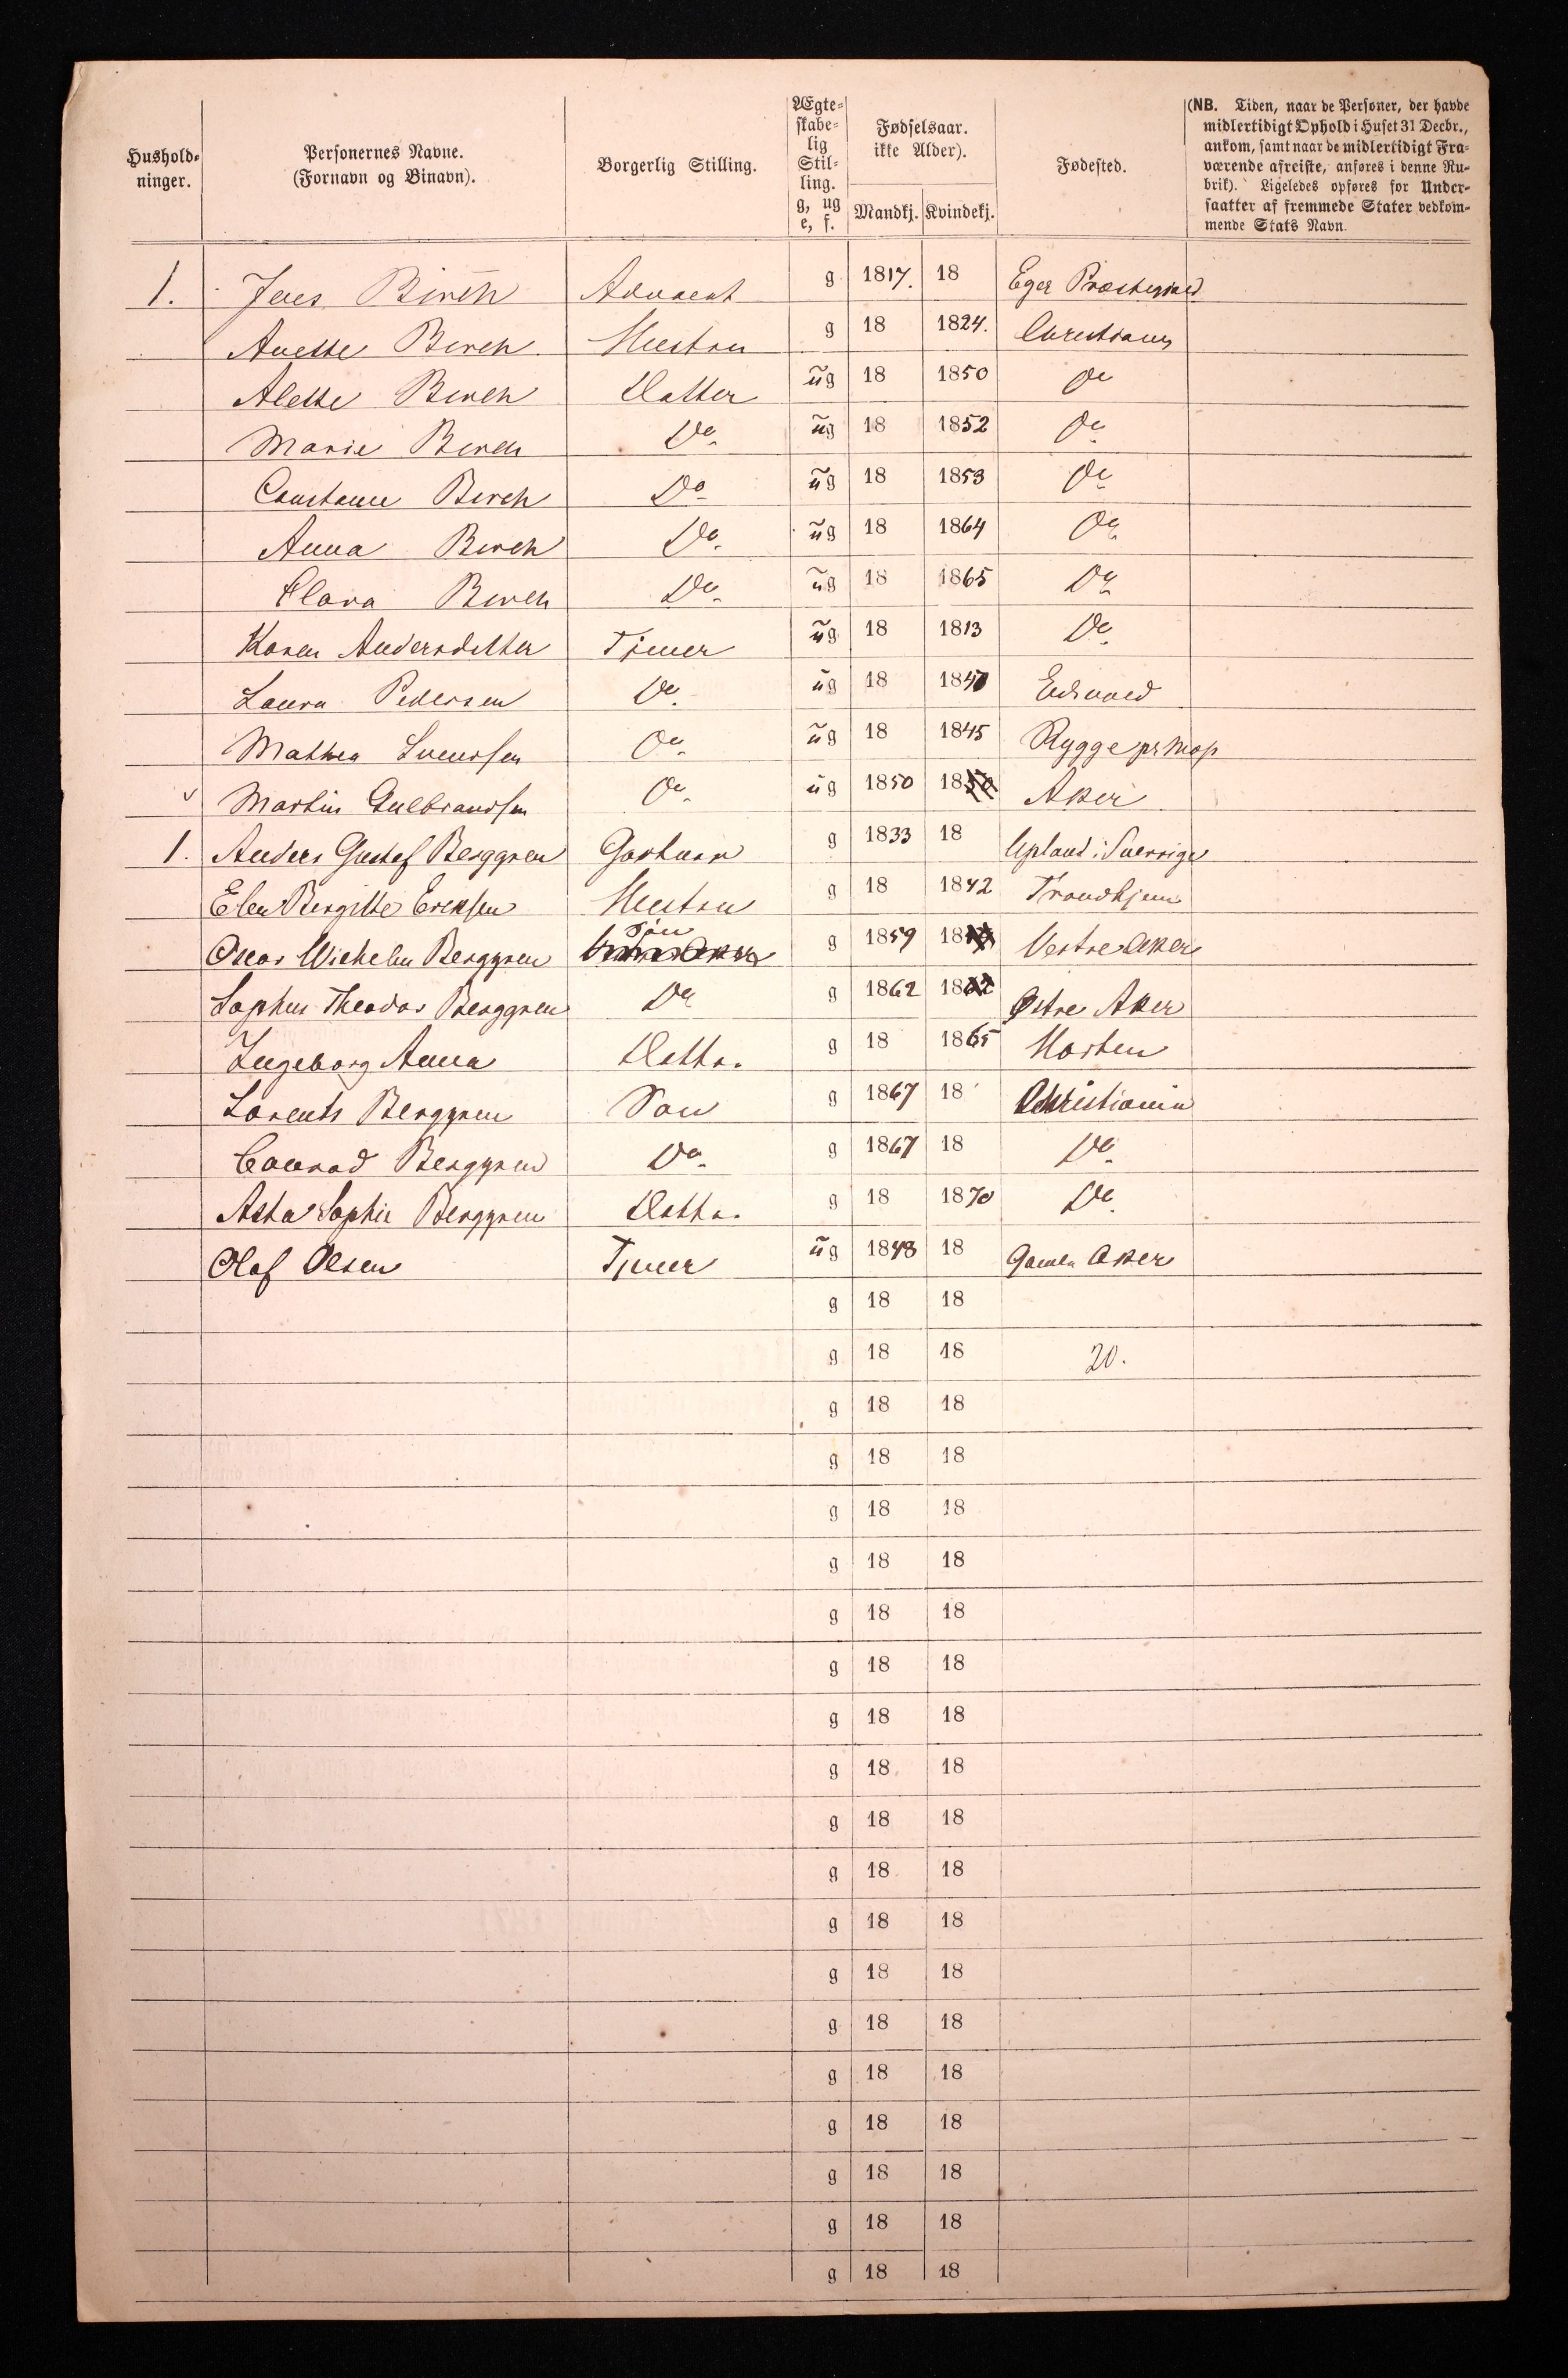 Hushold-
ninger.
Personernes Navne.
(Fornavn og Binavn).
Borgerlig Stilling.
Ægte-
skabe-
lig
Stil-
ling.
g, ug
e, f.
Fødselsaar.
ikke Alder).
Mandkj. Kvindekj.
Fødested.
(NB. Tiden, naar de Personer, der havde
midlertidigt Ophold i Huset 31 Decbr.,
ankom, samt naar de midlertidigt Fra-
værende afreiste, anføres i denne Ru-
brik). Ligeledes opføres for Under-
saatter af fremmede Stater vedkom-
mende Stats Navn.
1. Jens Birch Advocat g 1817. 18 Eger Præstegield
Anette Birch Hustru g 18 1824. Christiania
Alette Birch Datter ug 18 1850 Do
Marie Birch Do ug 18 1852 Do
Constance Birch Do ug 18 1853 Do
Anna Birch Do ug 18 1864 Do
Clara Birch Do ug 18 1865 Do
Karen Andersdatter Tjener ug 18 1813 Do
Laura Pedersen Do ug 18 1840 Eidsvold
Mathea Svendsen Do ug 18 1845 Rygge pr Moss
Martin Gulbrandsen Do ug 1850 1850 Aker
1. Anders Gustaf Berggren Gartner g 1833 18 Upland i Sverrige
Elen Bergitte Eriksen Hustru g 18 1842 Trondhjem
Oscar Wilhelm Berggren Søn g 1859 18 Vestre Aker
Sophus Theodor Berggren Do g 1862 1862 Østre Aker
Ingeborg Anna Datter g 18 1865 Horten
Lorents Berggren Søn g 1867 18 Christiania
Conrad Berggren Do g 1867 18 Do
Asta Sophie Berggren Datter g 18 1870 Do
Olaf Olsen Tjener ug 1848 18 Gamle Aker
g 18 18
g 18 18 20.
g 18 18
g 18 18
g 18 18
g 18 18
g 18 18
g 18 18
g 18 18
g 18 18
g 18 18
g 18 18
g 18 18
g 18 18
g 18 18
g 18 18
g 18 18
g 18 18
g 18 18
g 18 18